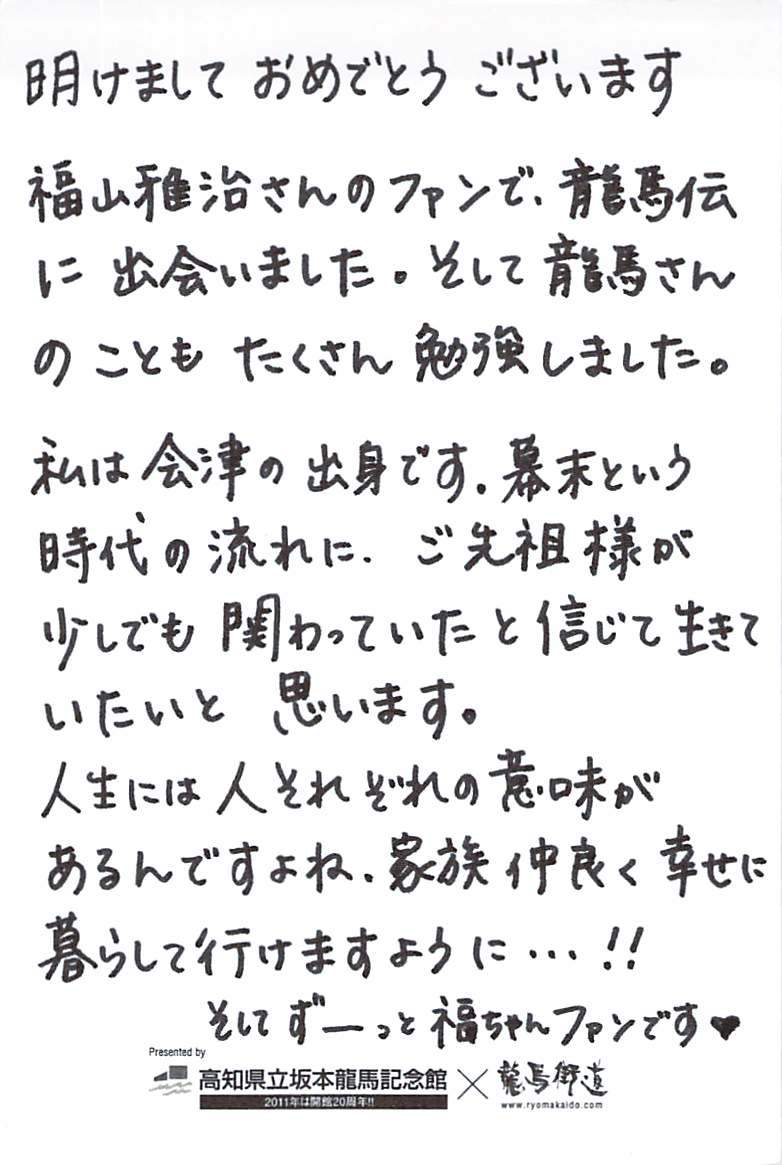 明けまして おめでとう ございます
福山雅治さんのファンで、龍馬伝
に 出会いました。そして龍馬さん
のことも たくさん 勉強しました。
私は会津の出身です。幕末という
時代の流れに、ご先祖様が
少しでも 関わっていたと信じて生きて
いたいと 思います。
人生には人それぞれの意味が
あるんですよね、家族仲良く幸せに
暮らして行けますように…!!
そしてずーっと福ちゃんファンです♥
Presented by
高知県立坂本龍馬記念館 × 龍馬街道
2011年は開館20周年!!
www.ryomakaido.com